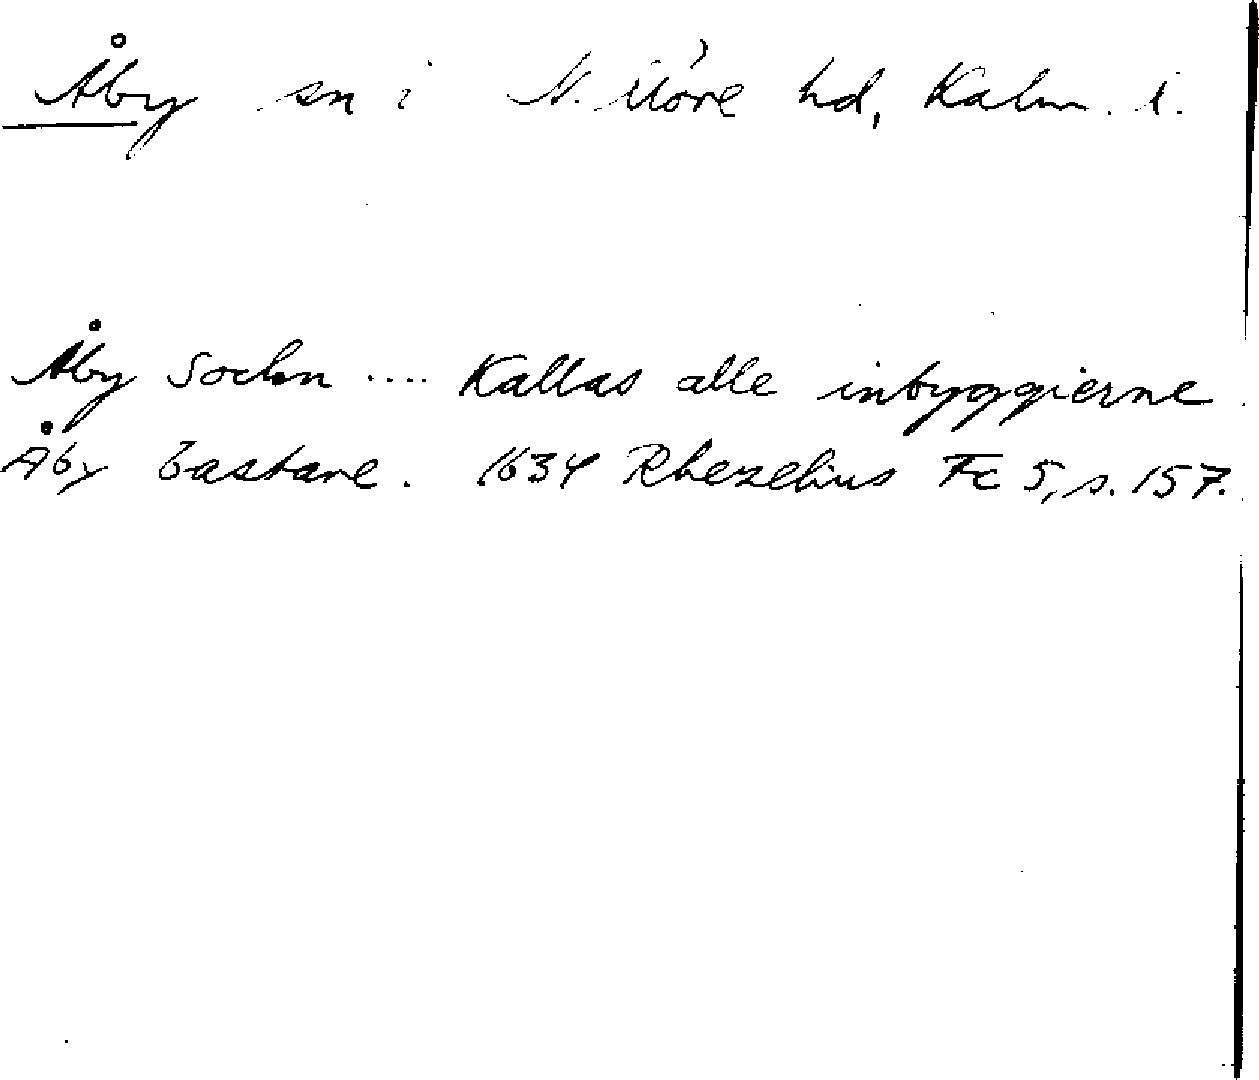 Åby sn i N. Möre hd, Kalm. l.
Åby Sochn .... Kallas alle inbyggierne
Åby Bastare. 1634 Rhezelius Fc 5, s. 157.